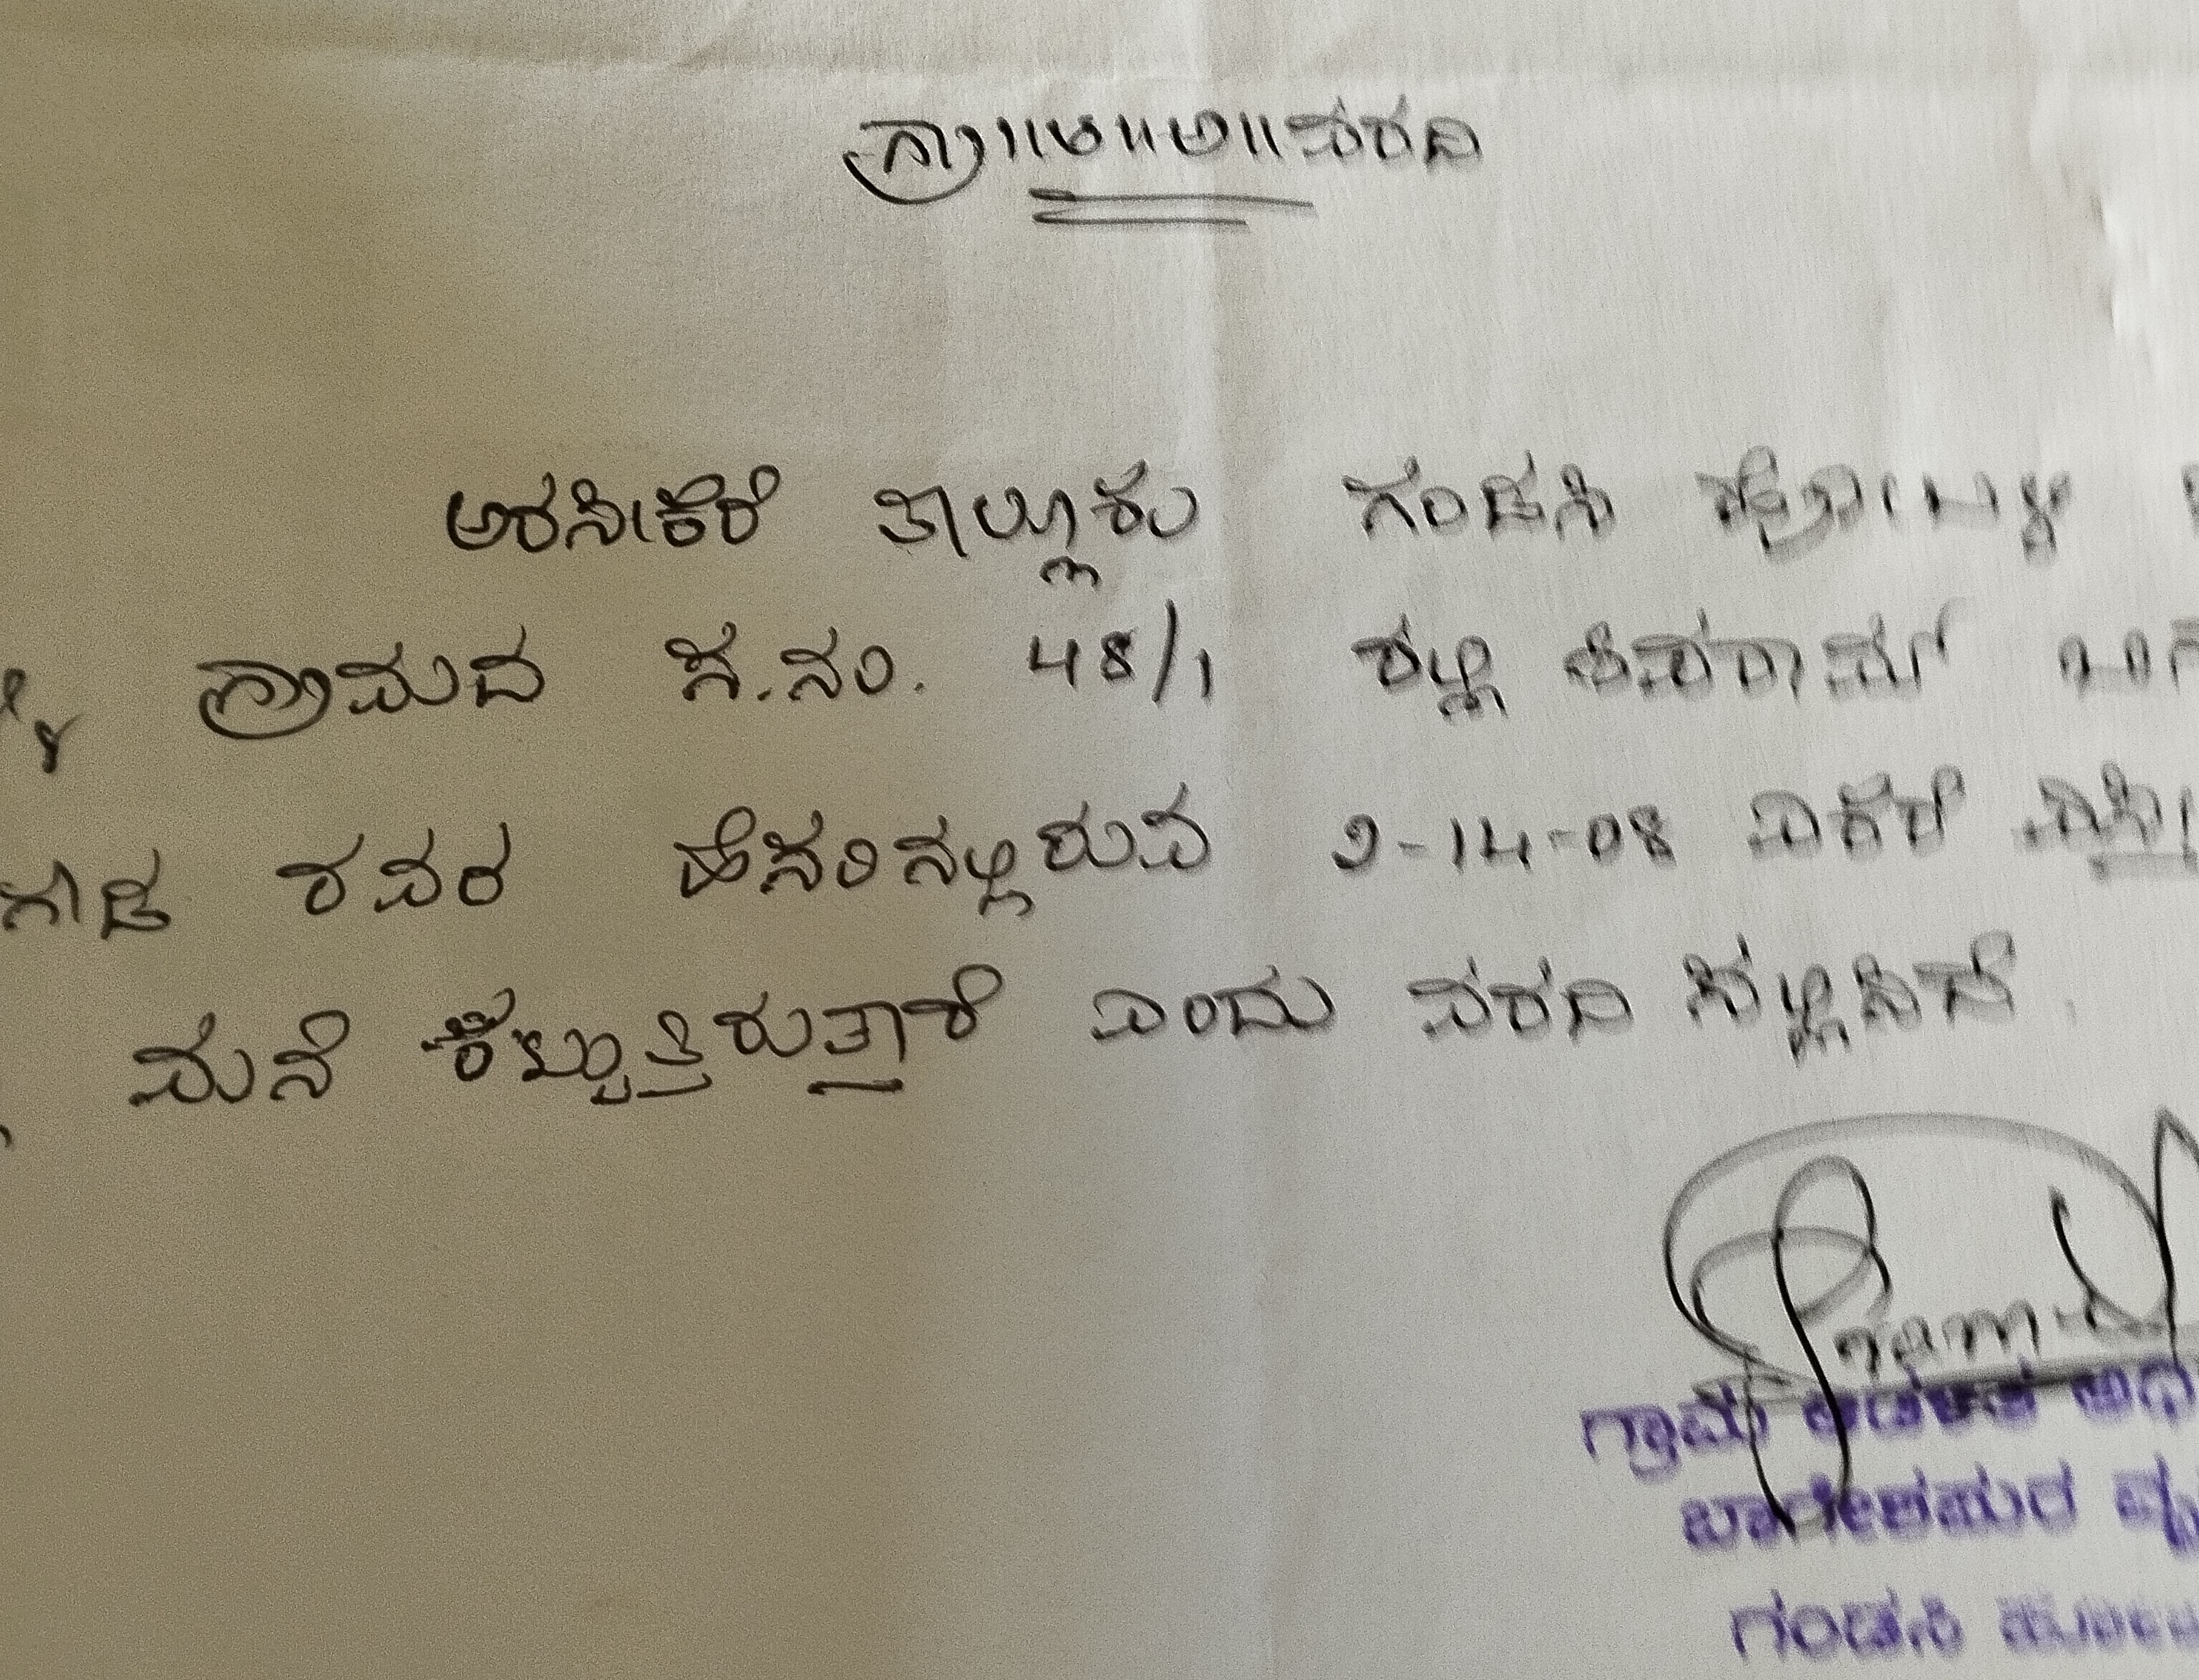 ಗ್ರಾ॥ಆ॥ಅ॥ವರದಿ
ಅರಸೀಕೆರೆ ತಾಲ್ಲೂಕು ಗಂಡಸಿ ಹೋಬಳಿ
ಗ್ರಾಮದ ಸ.ನಂ. 48/1 ರಲ್ಲಿ ಶಿವರಾಮ್
ಗೌಡ ರವರ ಹೆಸರಿನಲ್ಲಿರುವ 2-14-08 ಎಕರೆ
ಮನೆ ಕಟ್ಟುತ್ತಿರುತ್ತಾರೆ ಎಂದು ವರದಿ ಸಲ್ಲಿಸಿದೆ.
ಗ್ರಾಮ ಆಡಳಿತ
ಬಾಗೇಶಪುರ ವೃ
ಗಂಡಸಿ